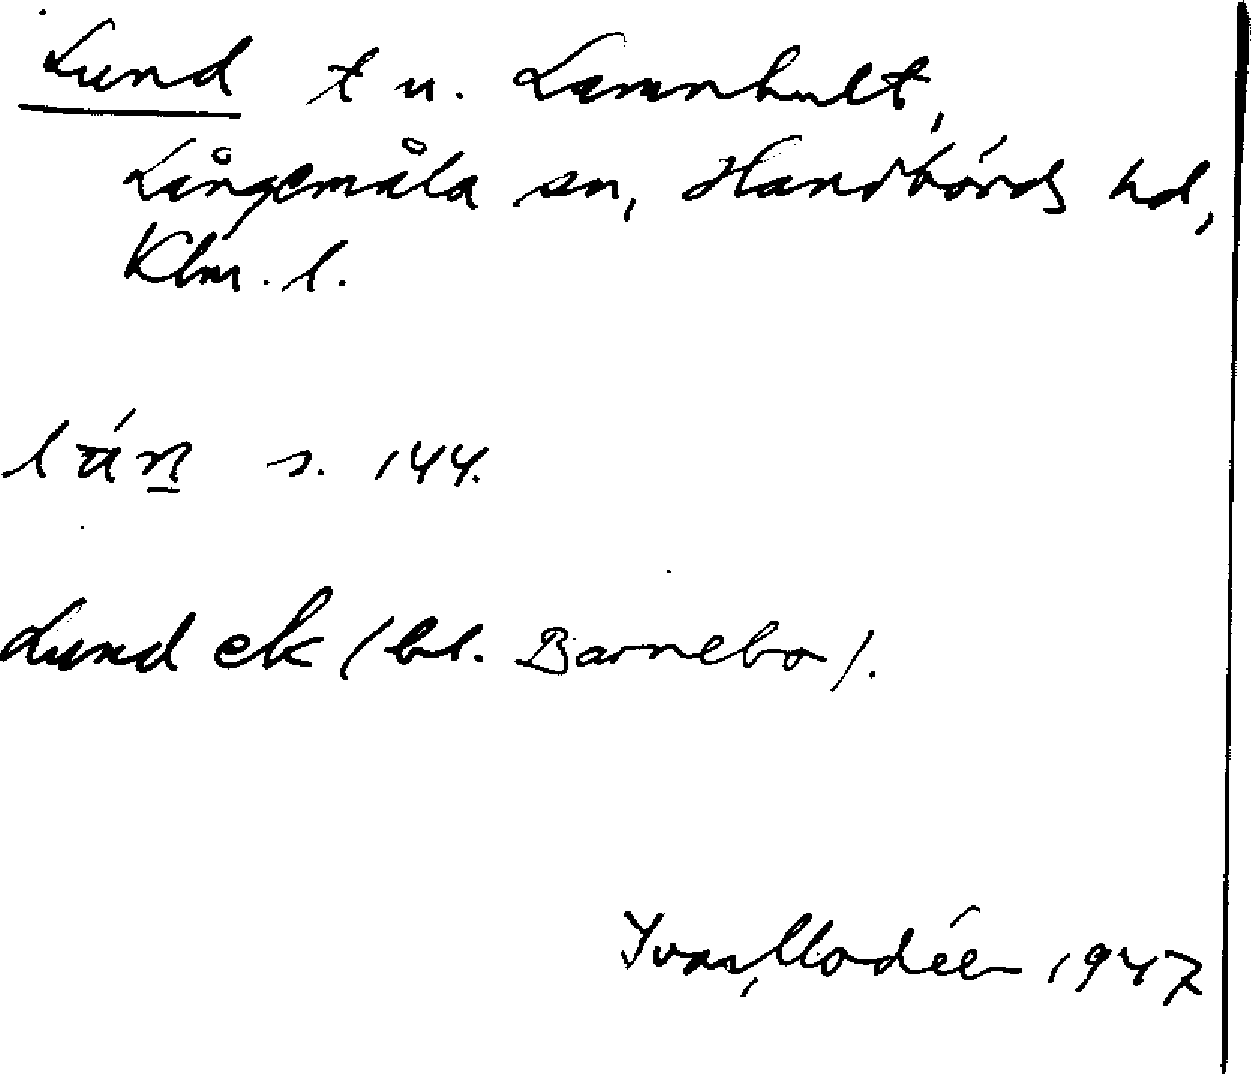 Lund t u. Lamnhult,
Långemåla sn, Handbörds hd,
Klm. l.
s. 144.
Lund ek (bl. Barnebo).
Ivar Modéer 1947